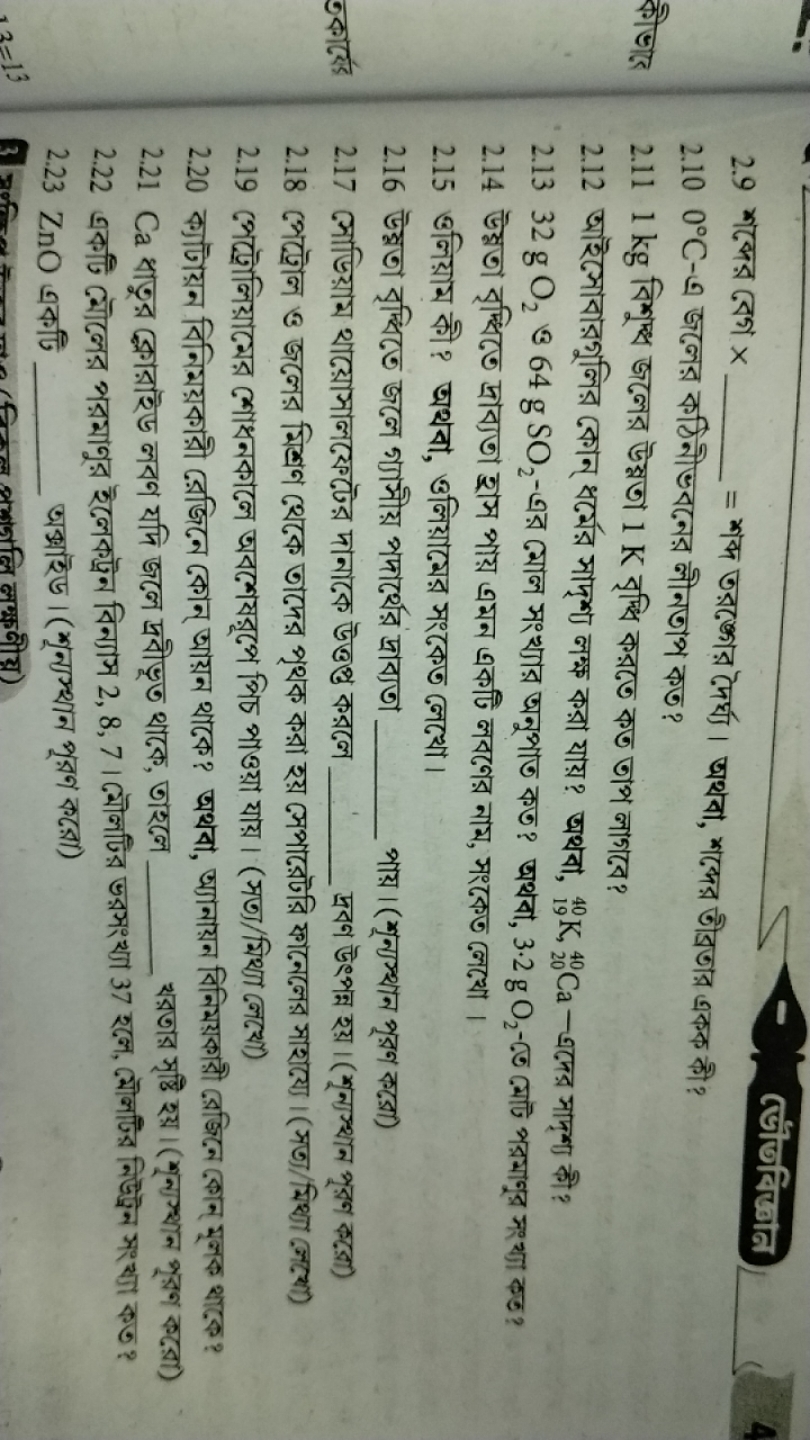 ভৌতবিজ্ঞান
4
2.9 শব্দের বেগ × ________ = শব্দ তরঙ্গের দৈর্ঘ্য। অথবা, শব্দের তীব্রতার একক কী?
2.10 0°C-এ জলের কঠিনীভবনের লীনতাপ কত?
2.11 1 kg বিশুদ্ধ জলের উষ্ণতা 1 K বৃদ্ধি করতে কত তাপ লাগবে?
2.12 আইসোবারগুলির কোন্ ধর্মের সাদৃশ্য লক্ষ করা যায়? অথবা, ⁴⁰₁₉K, ⁴⁰₂₀Ca —এদের সাদৃশ্য কী?
2.13 32 g O₂ ও 64 g SO₂-এর মোল সংখ্যার অনুপাত কত? অথবা, 3·2 g O₂-তে মোট পরমাণুর সংখ্যা কত?
2.14 উষ্ণতা বৃদ্ধিতে দ্রাব্যতা হ্রাস পায় এমন একটি লবণের নাম, সংকেত লেখো ।
2.15 ওলিয়াম কী? অথবা, ওলিয়ামের সংকেত লেখো।
2.16 উষ্ণতা বৃদ্ধিতে জলে গ্যাসীয় পদার্থের দ্রাব্যতা ________ পায়। (শূন্যস্থান পূরণ করো)
2.17 সোডিয়াম থায়োসালফেটের দানাকে উত্তপ্ত করলে ________ দ্রবণ উৎপন্ন হয়। (শূন্যস্থান পূরণ করো)
2.18 পেট্রোল ও জলের মিশ্রণ থেকে তাদের পৃথক করা হয় সেপারেটরি ফানেলের সাহায্যে। (সত্য/মিথ্যা লেখো)
2.19 পেট্রোলিয়ামের শোধনকালে অবশেষরূপে পিচ পাওয়া যায়। (সত্য/মিথ্যা লেখো)
2.20 ক্যাটায়ন বিনিময়কারী রেজিনে কোন্ আয়ন থাকে? অথবা, অ্যানায়ন বিনিময়কারী রেজিনে কোন্ মূলক থাকে?
2.21 Ca ধাতুর ক্লোরাইড লবণ যদি জলে দ্রবীভূত থাকে, তাহলে ________ খরতার সৃষ্টি হয়। (শূন্যস্থান পূরণ করো)
2.22 একটি মৌলের পরমাণুর ইলেকট্রন বিন্যাস 2, 8, 7। মৌলটির ভরসংখ্যা 37 হলে, মৌলটির নিউট্রন সংখ্যা কত?
2.23 ZnO একটি ________ অক্সাইড। (শূন্যস্থান পূরণ করো)